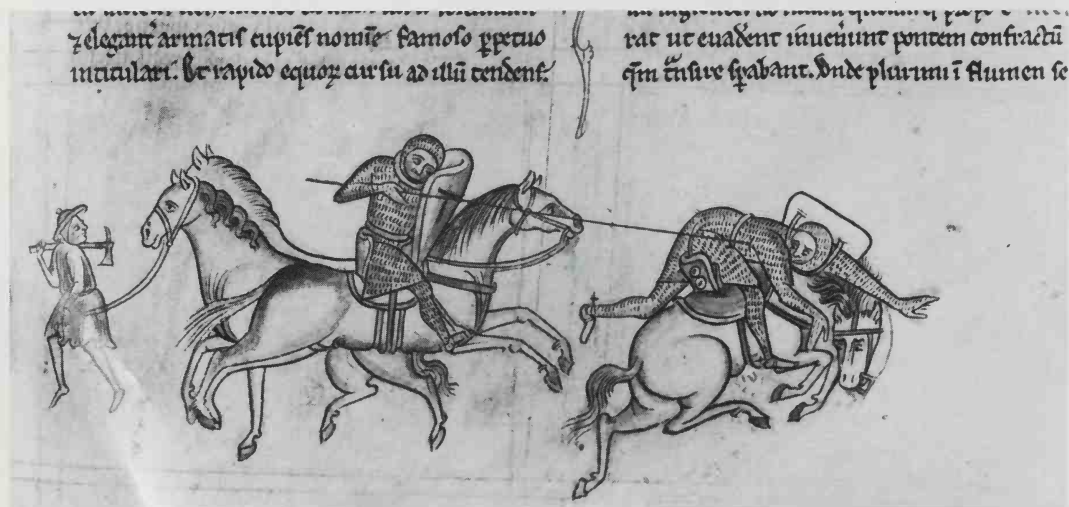 ⁊ elegant᷑ armatis cupiēs nomīe famoso ꝑpetuo
intitulari. Et rapido equoꝝ cursu ad illū tendens.
rat ut euaderent inuenerunt pontem confractū
q̄m tᷓnsire sꝑabant. Vnde plurimi ī flumen se